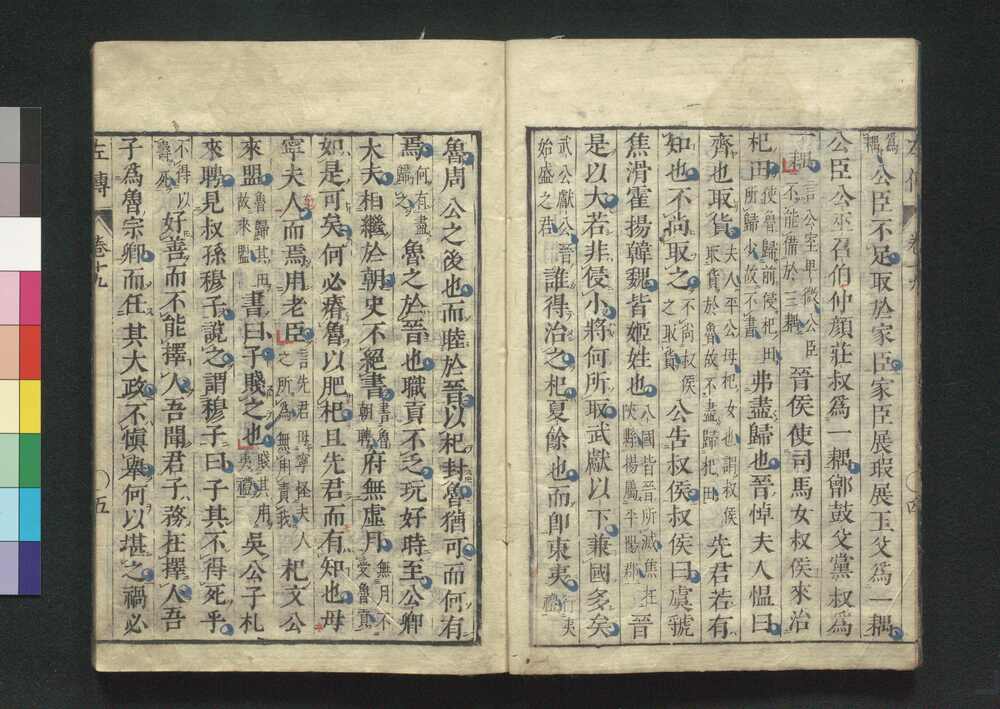 左傳 卷十九 四
爲耦公臣不足取於家臣家臣展瑕展玉父爲一耦
公臣公巫召伯仲顔莊叔爲一耦鄫鼓父黨叔爲
一耦言公室卑微公臣不能備於三耦晉侯使司馬女叔侯來治
杞田使魯歸前侵杞田所歸少故不書弗盡歸也晉悼夫人慍曰
齊也取貨夫人平公母杞女也謂叔侯取貨於魯故不盡歸杞田先君若有
知也不尚取之不尚叔侯之取貨公告叔侯叔侯曰虞虢
焦滑霍揚韓魏皆姬姓也八國皆晉所滅焦在陝縣揚屬平陽郡晉
是以大若非侵小將何所取武獻以下兼國多矣
武公獻公晉始盛之君誰得治之杞夏餘也而即東夷行夷禮
魯周公之後也而睦於晉以杞封魯猶可而何有
焉何有盡歸之魯之於晉也職貢不乏玩好時至公卿
大夫相繼於朝史不絕書書魯朝聘府無虛月無月不受魯貢
如是可矣何必瘠魯以肥杞且先君而有知也毋
寧夫人而焉用老臣言先君毋寧怪夫人之所爲無用責我杞文公
來盟魯歸其田故來盟書曰子賤之也賤其用夷禮吳公子札
來聘見叔孫穆子說之謂穆子曰子其不得死乎
不得以壽死好善而不能擇人吾聞君子務在擇人吾
子爲魯宗卿而任其大政不愼舉何以堪之禍必
左傳 卷十九 五